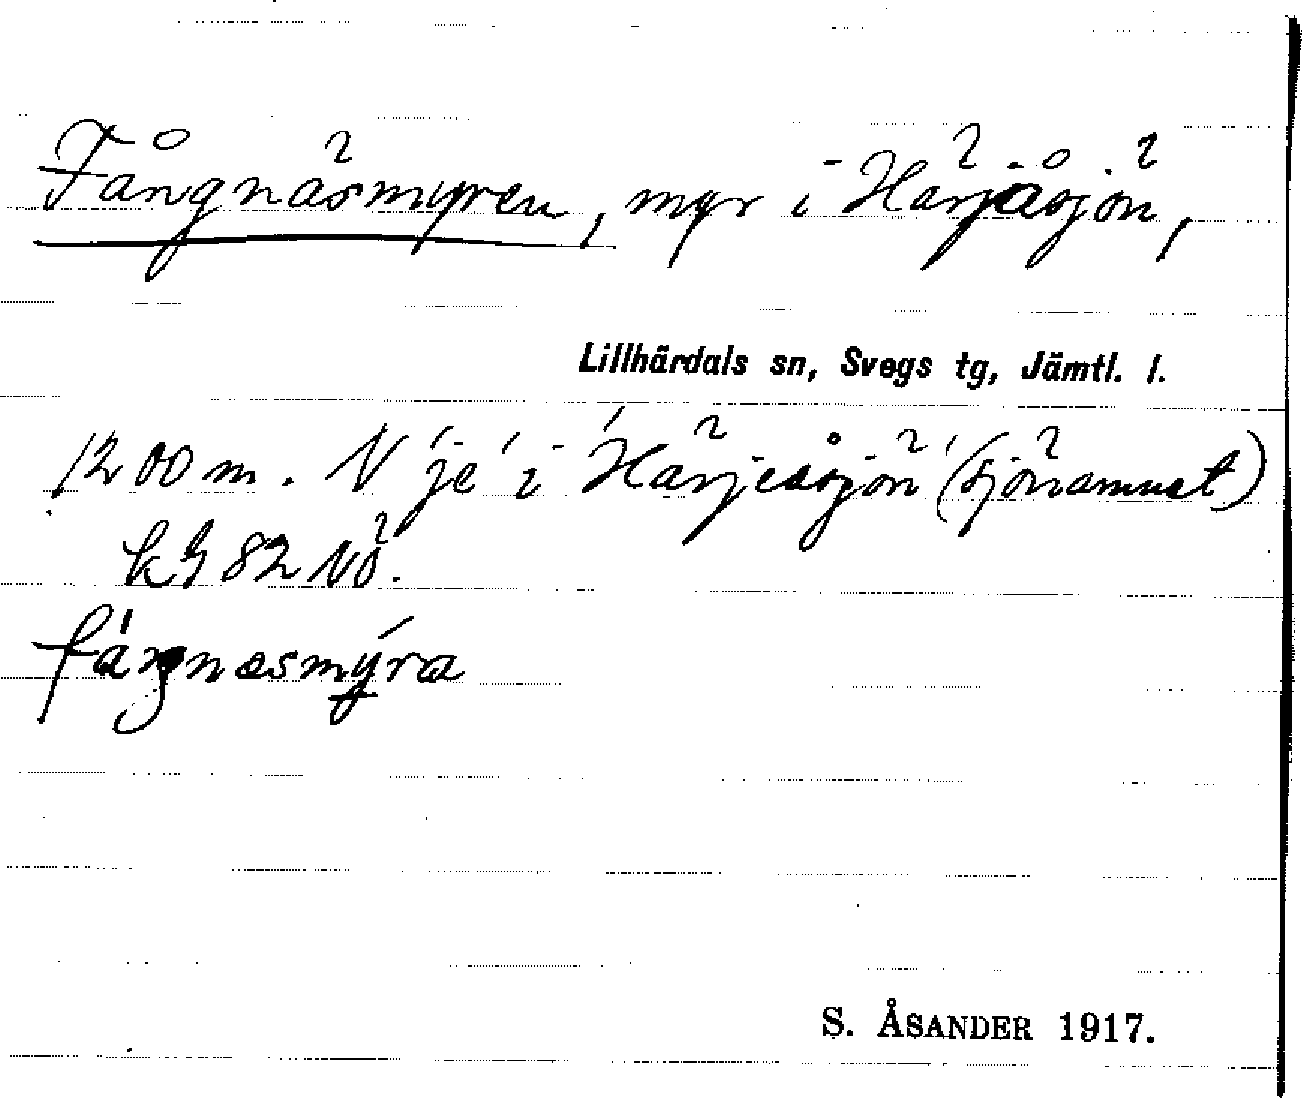 Fångnäsmyren, myr i Härjåsjön,
Lillhärdals sn, Svegs tg, Jämtl. l.
1200 m. N je i Härjeåsjön (sjönamnet)
k 9 82 NÖ.
fángnæsmýra
S. ÅSANDER 1917.